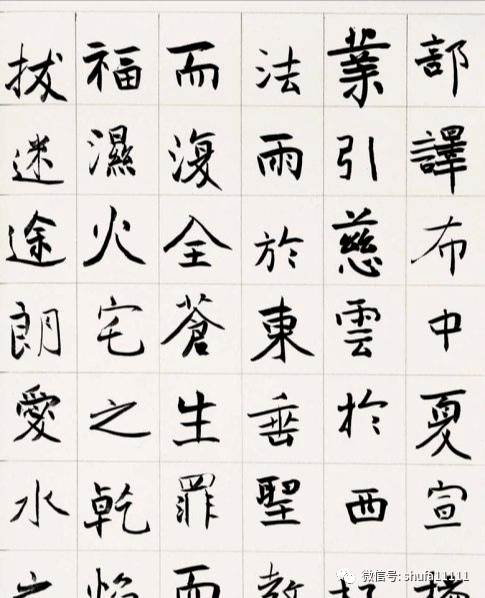 部譯布中夏宣
業引慈雲於西
法雨於東垂聖教
而復全蒼生罪而
福濕火宅之乾焰
拔迷途朗愛水之
微信号: shufa11111